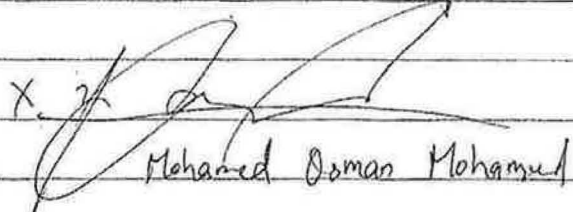 X.
Mohamed Osman Mohamud